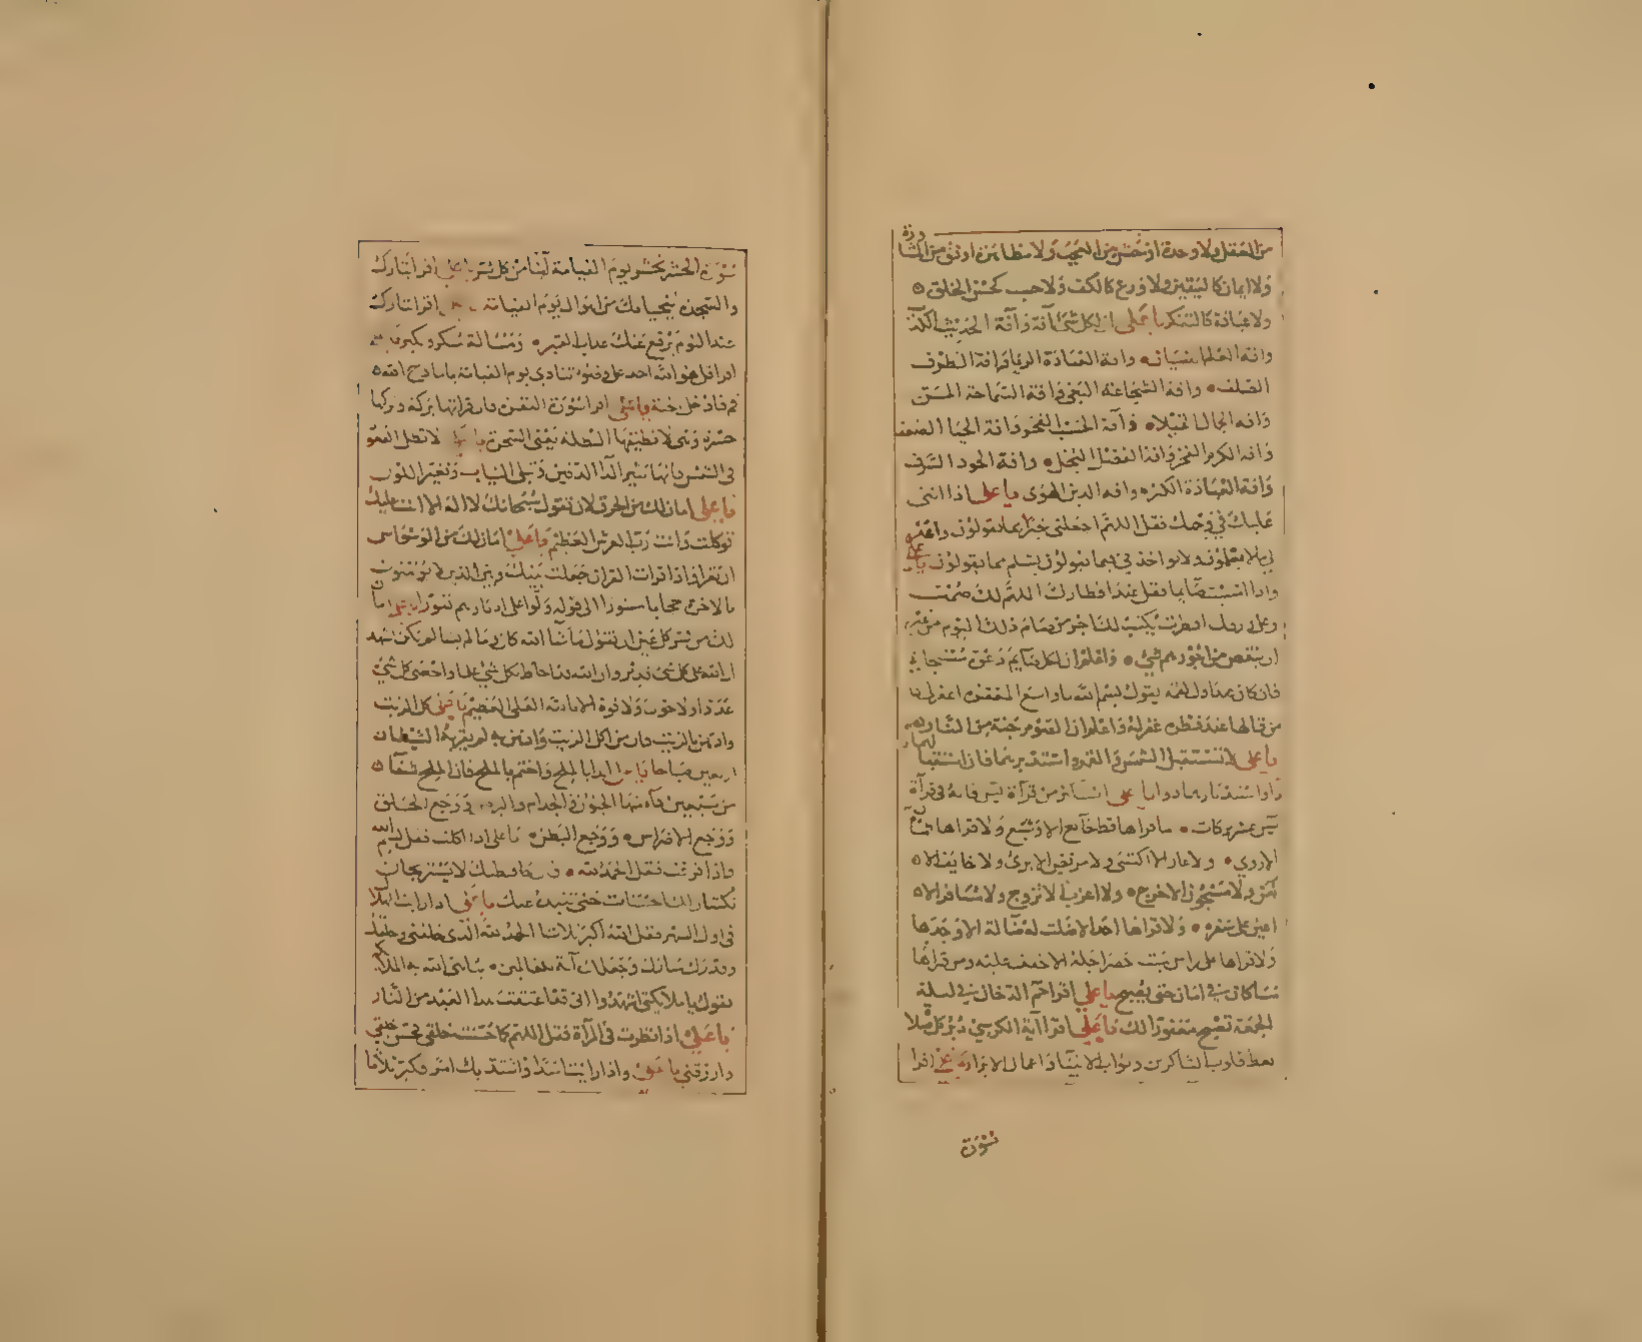 من العقل ولا وحدة اوحش من العجب ولا مظاهرة اوثق من المشا
ورة
ولا ايمان كاليقين ولا ورع كالكف ولا حسب كحسن الخلق
ولا عبادة كالتفكر يا علي ان لكل شئ آفة وآفة الحديث الكذب
وافة العلم النسيان وافة العبادة الريا وافة الظرف
الصلف وافة الشجاعة البغي وافة السماحة المن
وافة الجمال الخيلاء وآفة الحسب الفخر وافة الحيا الضعف
وافة الكرم الفخر وافة الفضل البخل وافة الجود السرف
وافة العبادة الكبر وافة الدين الهوى يا علي اذا اثنى
عليك في وجهك فقل اللهم اجعلني خيرا مما يقولون واغفر
لي ما لا يعلمون ولا تواخذني فيما يقولون تسلم مما يقولون يا علي
واذا امسيت صائما فقل عند افطارك اللهم لك صمت
وعلى رزقك افطرت يكتب لك اجر من صام ذلك اليوم من غير
ان ينقص من اجورهم شئ واعلم ان لكل صايم دعوة مستجابة
فان كان عند اول لقمة يقول بسم الله يا واسع المغفرة اغفر لي
من قالها عند فطره غفر له واعلم ان الصوم جنة من النار
يا علي لا تستقبل الشمس والقمر واستدبرهما فان استقبالهما
دا واستدبارهما دوا يا علي استكثر من قرآة يس فانه في قرآة
يس عشر بركات ما قراها قط جايع الا وشبع ولا قراها ظمآن
الا روي ولا عار الا اكتسى ولا مريض الا برئ ولا خايف الا
امن ولا مسجون الا خرج ولا اعزب الا تزوج ولا مسافر الا
اعين على سفره ولا قراها احد ضلت له ضالة الا وجدها
ولا قراها على راس ميت حضر اجله الا خفف عليه ومن قراها
مسا كان في امان حتى يصبح يا علي اقرا حم الدخان في ليلة
الجمعة تصبح مغفورا لك يا علي اقرا آية الكرسي دبر كل صلاة
تعط قلوب الشاكرين وثواب الانبيا واعمال الابرار يا علي اقرا
سورة
سورة الحشر تحشر يوم القيامة آمنا من كل شر يا علي اقرا تبارك
والسجدة ينجيانك من اهوال يوم القيامة يا علي اقرا تبارك
عند النوم يرفع عنك عذاب القبر ومسالة منكر ونكير يا علي
اقرا قل هو الله احد على وضوء تنادى يوم القيامة يا مادح الله
قم فادخل الجنة يا علي اقرا سورة البقرة فان قراتها بركة وتركها
حسرة وهى لا تطيقها البطلة يعني السحرة يا علي لا تطل القعود
في الشمس فانها تثير الدآ الدفين وتبلي الثياب وتغير اللون
يا علي امان لك من الحرق ان تقول سبحانك لا اله الا انت عليك
توكلت وانت رب العرش العظيم يا علي امان لك من الوسواس
ان تقرا واذا قرات القران جعلنا بينك وبين الذين لا يؤمنون
بالاخرة حجابا مستورا الى قوله ولوا على ادبارهم نفورا يا علي امان
لك من شر كل عين ان تقول ما شآ الله كان وما لم يشا لم يكن اشهد
ان الله على كل شئ قدير وان الله قد احاط بكل شئ علما واحصى كل شئ
عددا ولا حول ولا قوة الا بالله العلي العظيم يا علي كل الزيت
وادهن بالزيت فان من اكل الزيت وادهن به لم يقربه الشيطان
اربعين صباحا يا علي ابدا بالملح واختم بالملح فان الملح شفآ
من سبعين دآء منها الجنون والجذام والبرص ووجع الحلق
ووجع الاضراس ووجع البطن يا علي اذا اكلت فقل بسم الله
واذا فرغت فقل الحمد لله فان حافظيك لا يستريحان
يكتبان لك الحسنات حتى تنبذه عنك يا علي اذا رايت الهلال
في اول الشهر فقل الله اكبر ثلاثا الحمد لله الذي خلقني وخلقك
وقدرك منازل وجعلك آية للعالمين يباهي الله به الملائكة
يقول يا ملائكتي اشهدوا اني قد اعتقت هذا العبد من النار
يا علي اذا نظرت في المرآة فقل اللهم كما حسنت خلقي فحسن خلقي
وارزقني يا علي واذا رايت اسدا واشتد بك امر فكبر ثلاثا